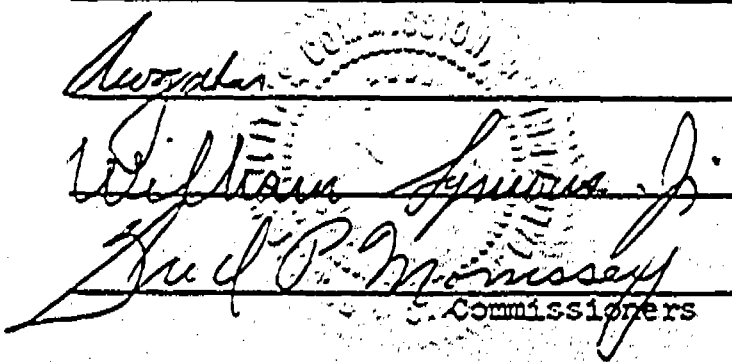 COMMISSION
William Symons Jr.
Fred P. Morrissey
Commissioners